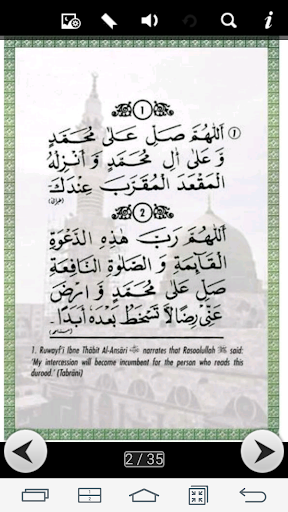 1
اَللّٰهُمَّ صَلِّ عَلٰى مُحَمَّدٍ ①
وَّ عَلٰى اٰلِ مُحَمَّدٍ وَّ اَنْزِلْهُ
الْمَقْعَدَ الْمُقَرَّبَ عِنْدَكَ
2
اَللّٰهُمَّ رَبَّ هٰذِهِ الدَّعْوَةِ
الْقَآئِمَةِ وَ الصَّلٰوةِ النَّافِعَةِ
صَلِّ عَلٰى مُحَمَّدٍ وَّ ارْضَ
عَنِّيْ رِضًا لَّا تَسْخَطُ بَعْدَهٗ اَبَدًا
1. Ruwayf'i Ibne Thābit Al-Ansāri narrates that Rasoolullah ﷺ said:
'My intercession will become incumbent for the person who reads this
durood.' (Tabrāni)
2 / 35